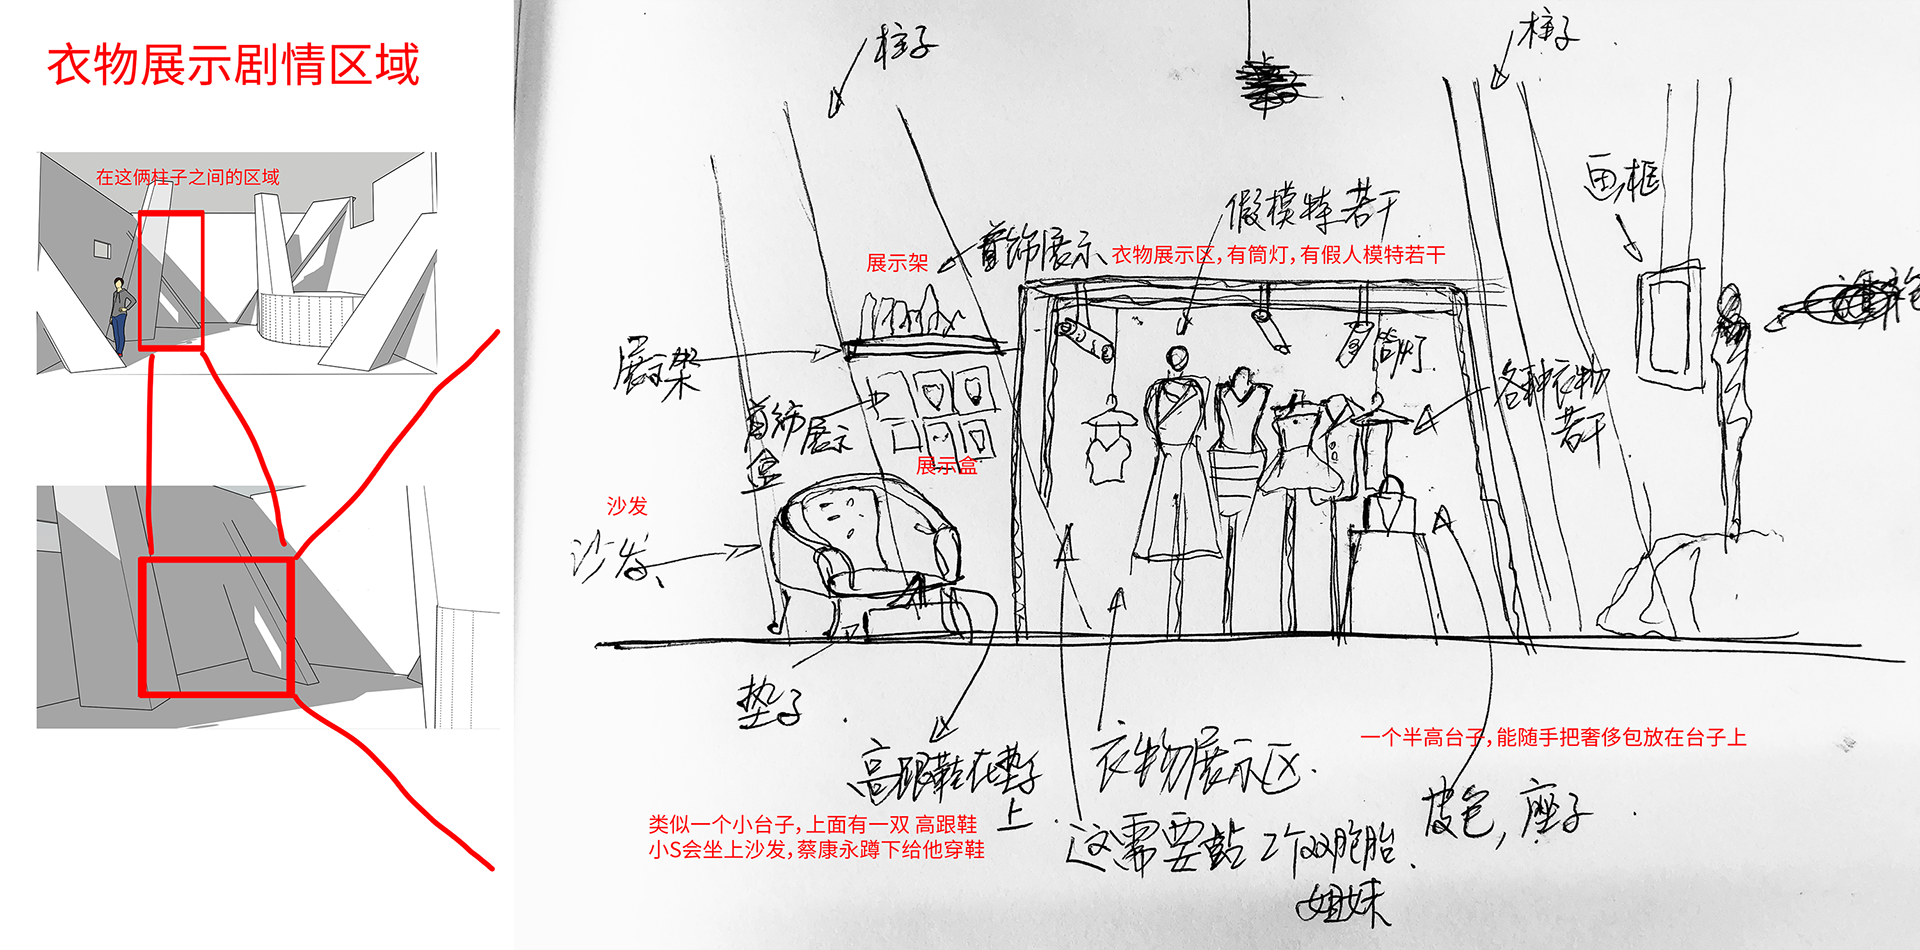 衣物展示剧情区域
在这俩柱子之间的区域
柱子
柱子
画框
假模特若干
首饰展示
展示架
衣物展示区,有筒灯,有假人模特若干
展示架
筒灯
各种衣物
若干
首饰展示
盒
展示盒
沙发
沙发
垫子
高跟鞋在垫子
上
衣物展示区.
一个半高台子,能随手把奢侈包放在台子上
皮包,座子
类似一个小台子,上面有一双 高跟鞋
小S会坐上沙发,蔡康永蹲下给他穿鞋
这需要站2个双胞胎
姐妹